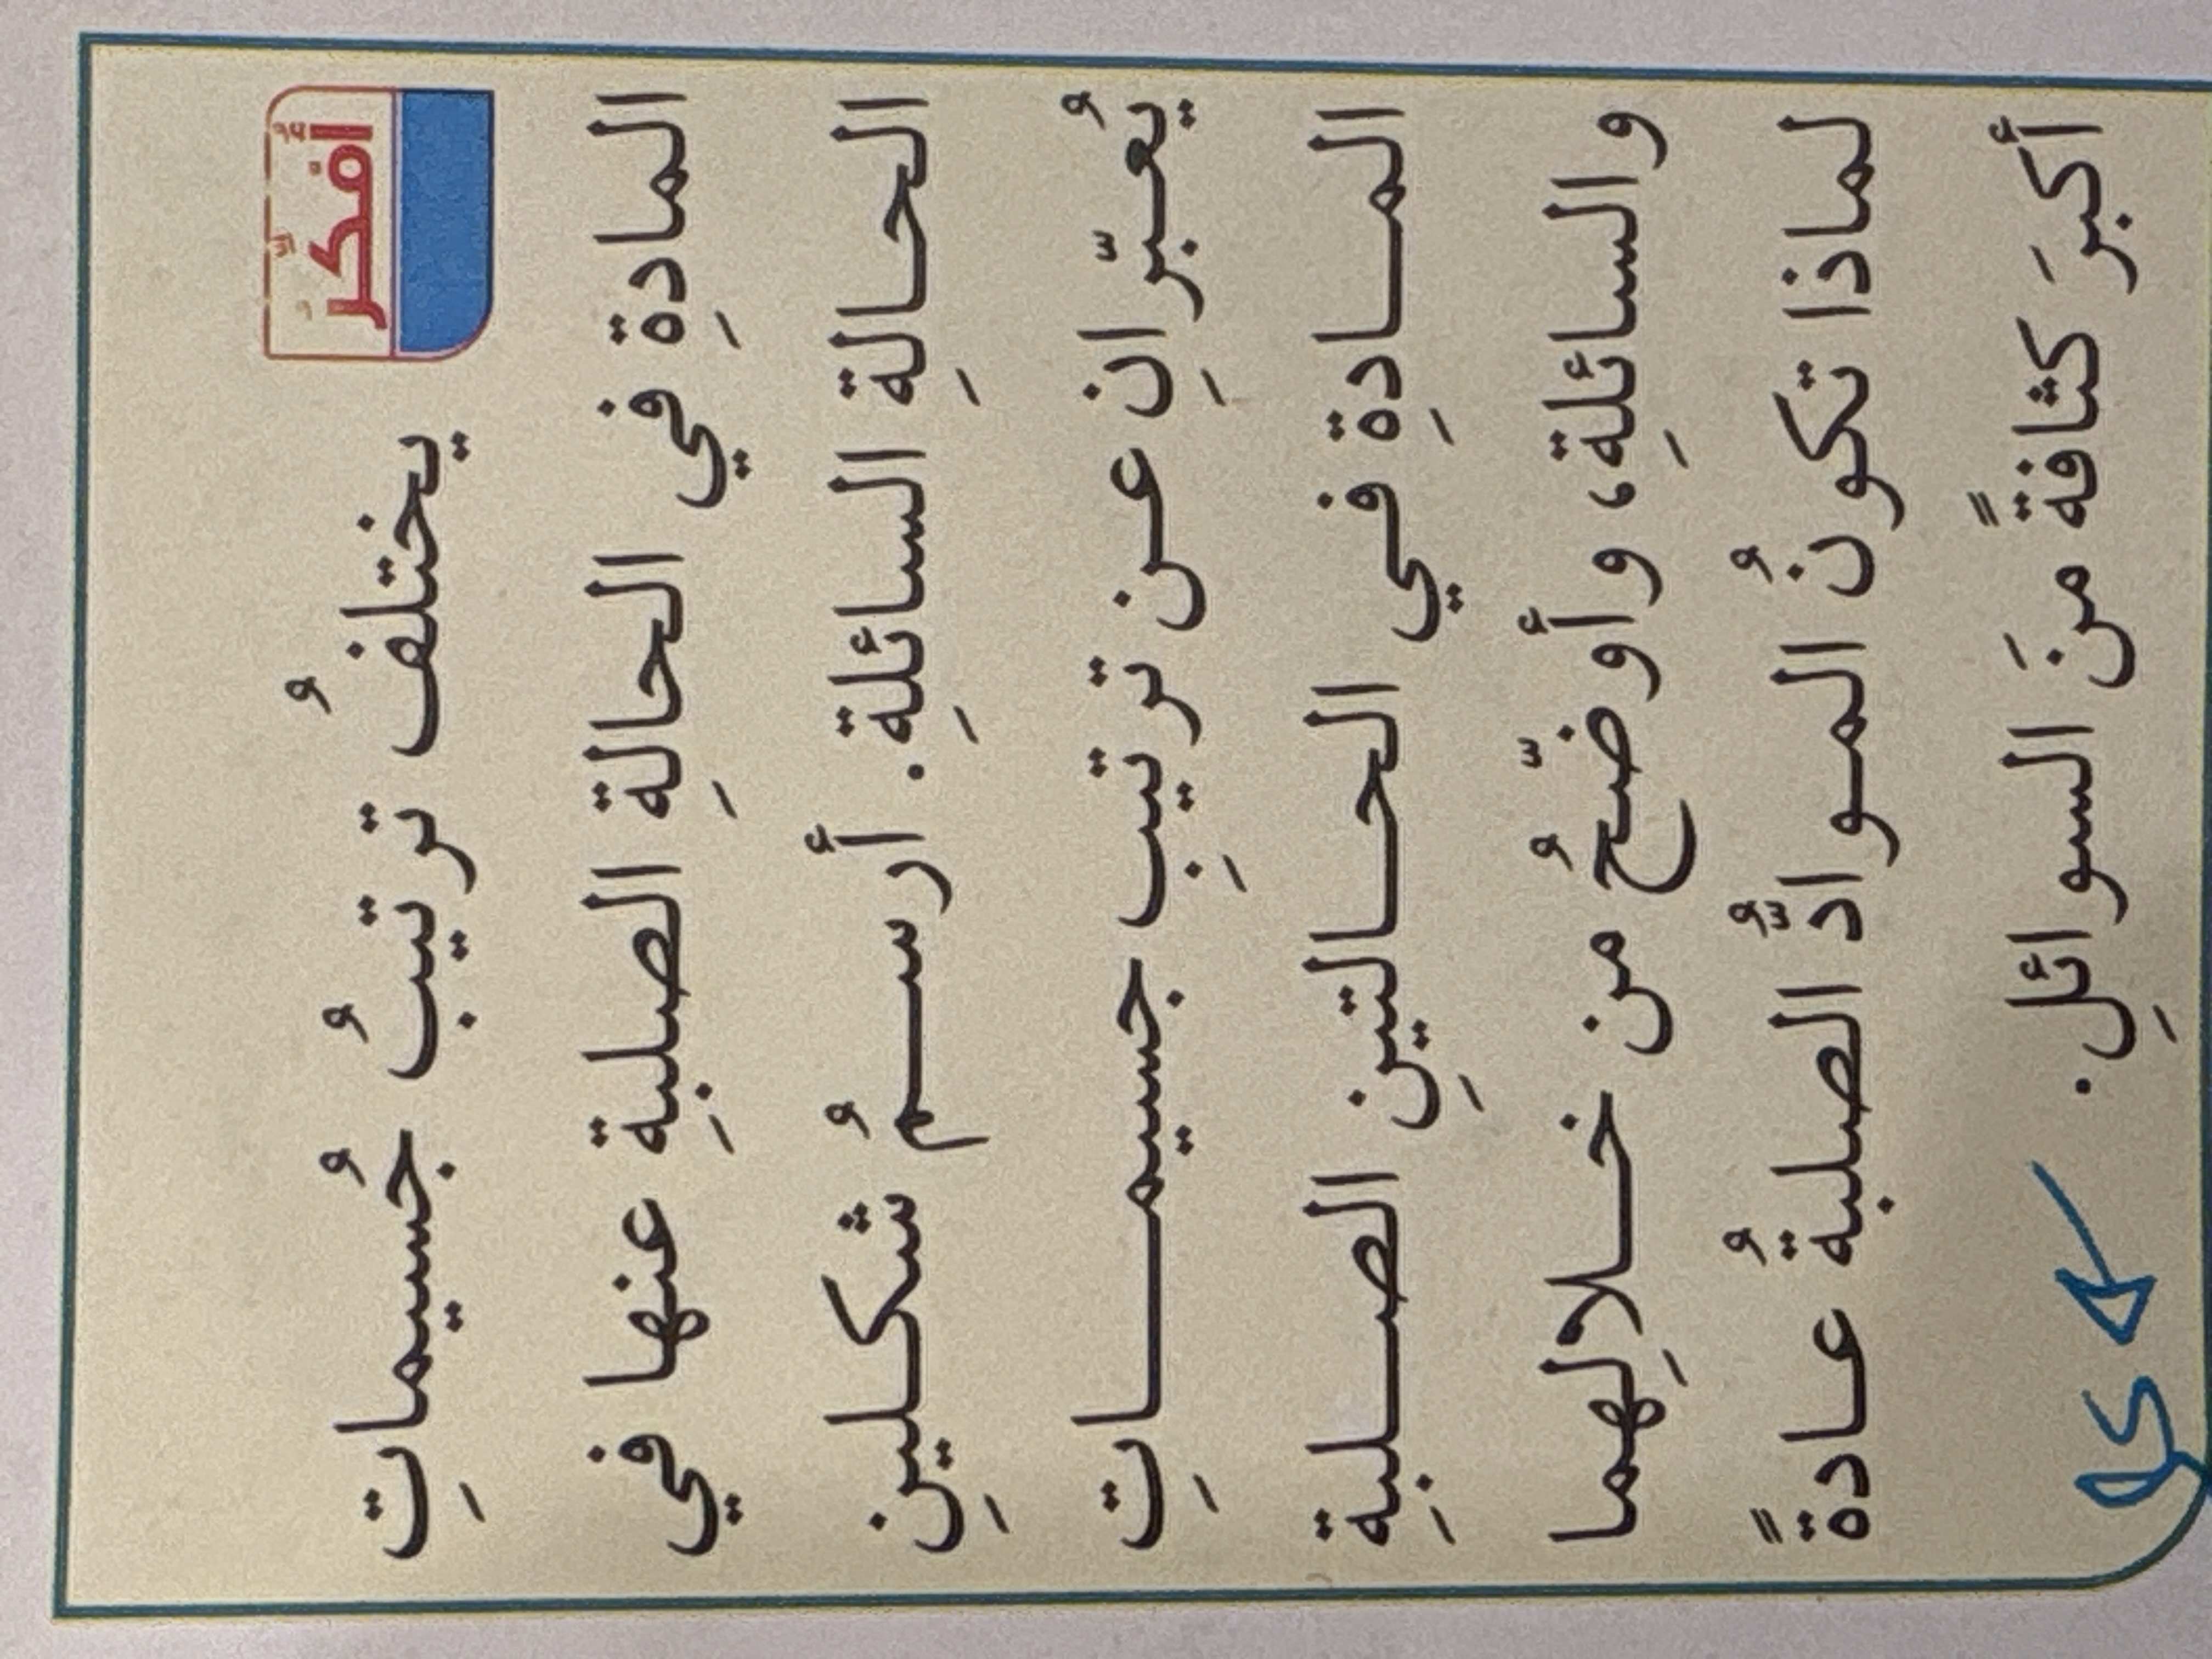 أُفكِّرُ
يختلفُ ترتيبُ جُسيماتِ
المادةِ في الحالةِ الصلبةِ عنها في
الحالةِ السائلةِ. أرسمُ شكلينِ
يُعبّرانِ عن ترتيبِ جسيماتِ
المادةِ في الحالتينِ الصلبةِ
والسائلةِ، وأوضّحُ من خلالِهما
لماذا تكونُ الموادُّ الصلبةُ عادةً
أكبرَ كثافةً منَ السوائلِ.